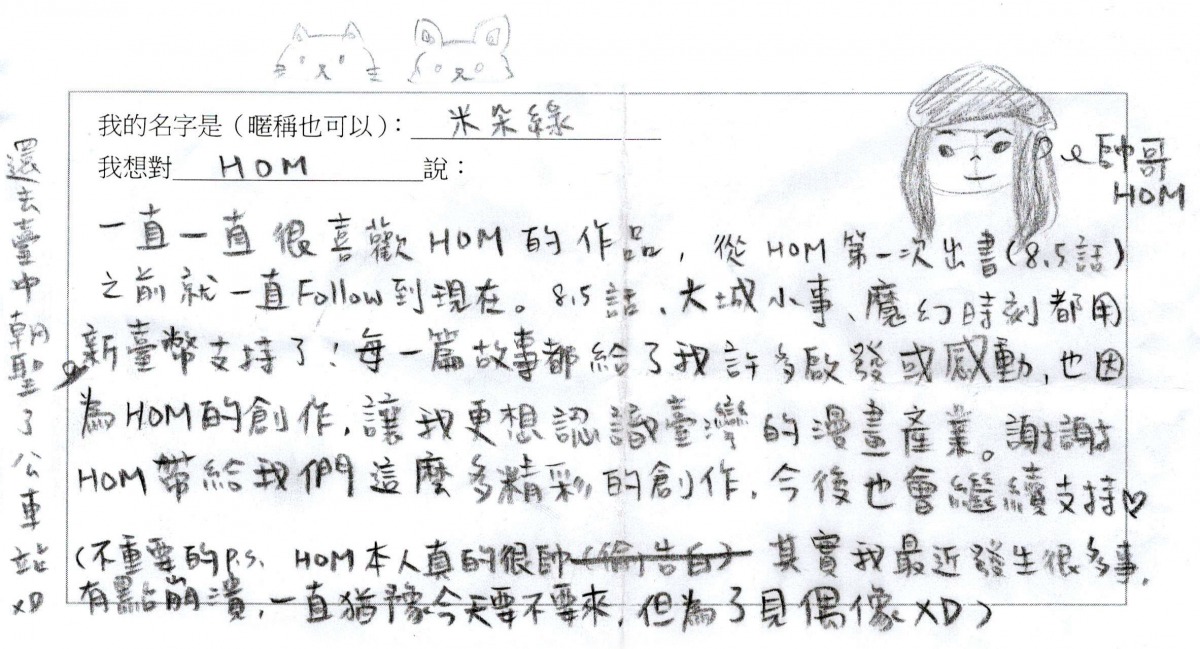 我的名字是（暱稱也可以）：米朵綠
我想對 HOM 說：
帥哥
HOM
一直一直很喜歡HOM的作品，從HOM第一次出書(8.5話)
之前就一直Follow到現在。8.5話、大城小事、魔幻時刻都用
新臺幣支持了！每一篇故事都給了我許多啟發或感動，也因
為HOM的創作，讓我更想認識臺灣的漫畫產業。謝謝
HOM帶給我們這麼多精彩的創作，今後也會繼續支持♡
(不重要的P.S. HOM本人真的很帥(偷告白) 其實我最近發生很多事，
有點崩潰，一直猶豫今天要不要來，但為了見偶像XD)
還去臺中朝聖了公車站XD